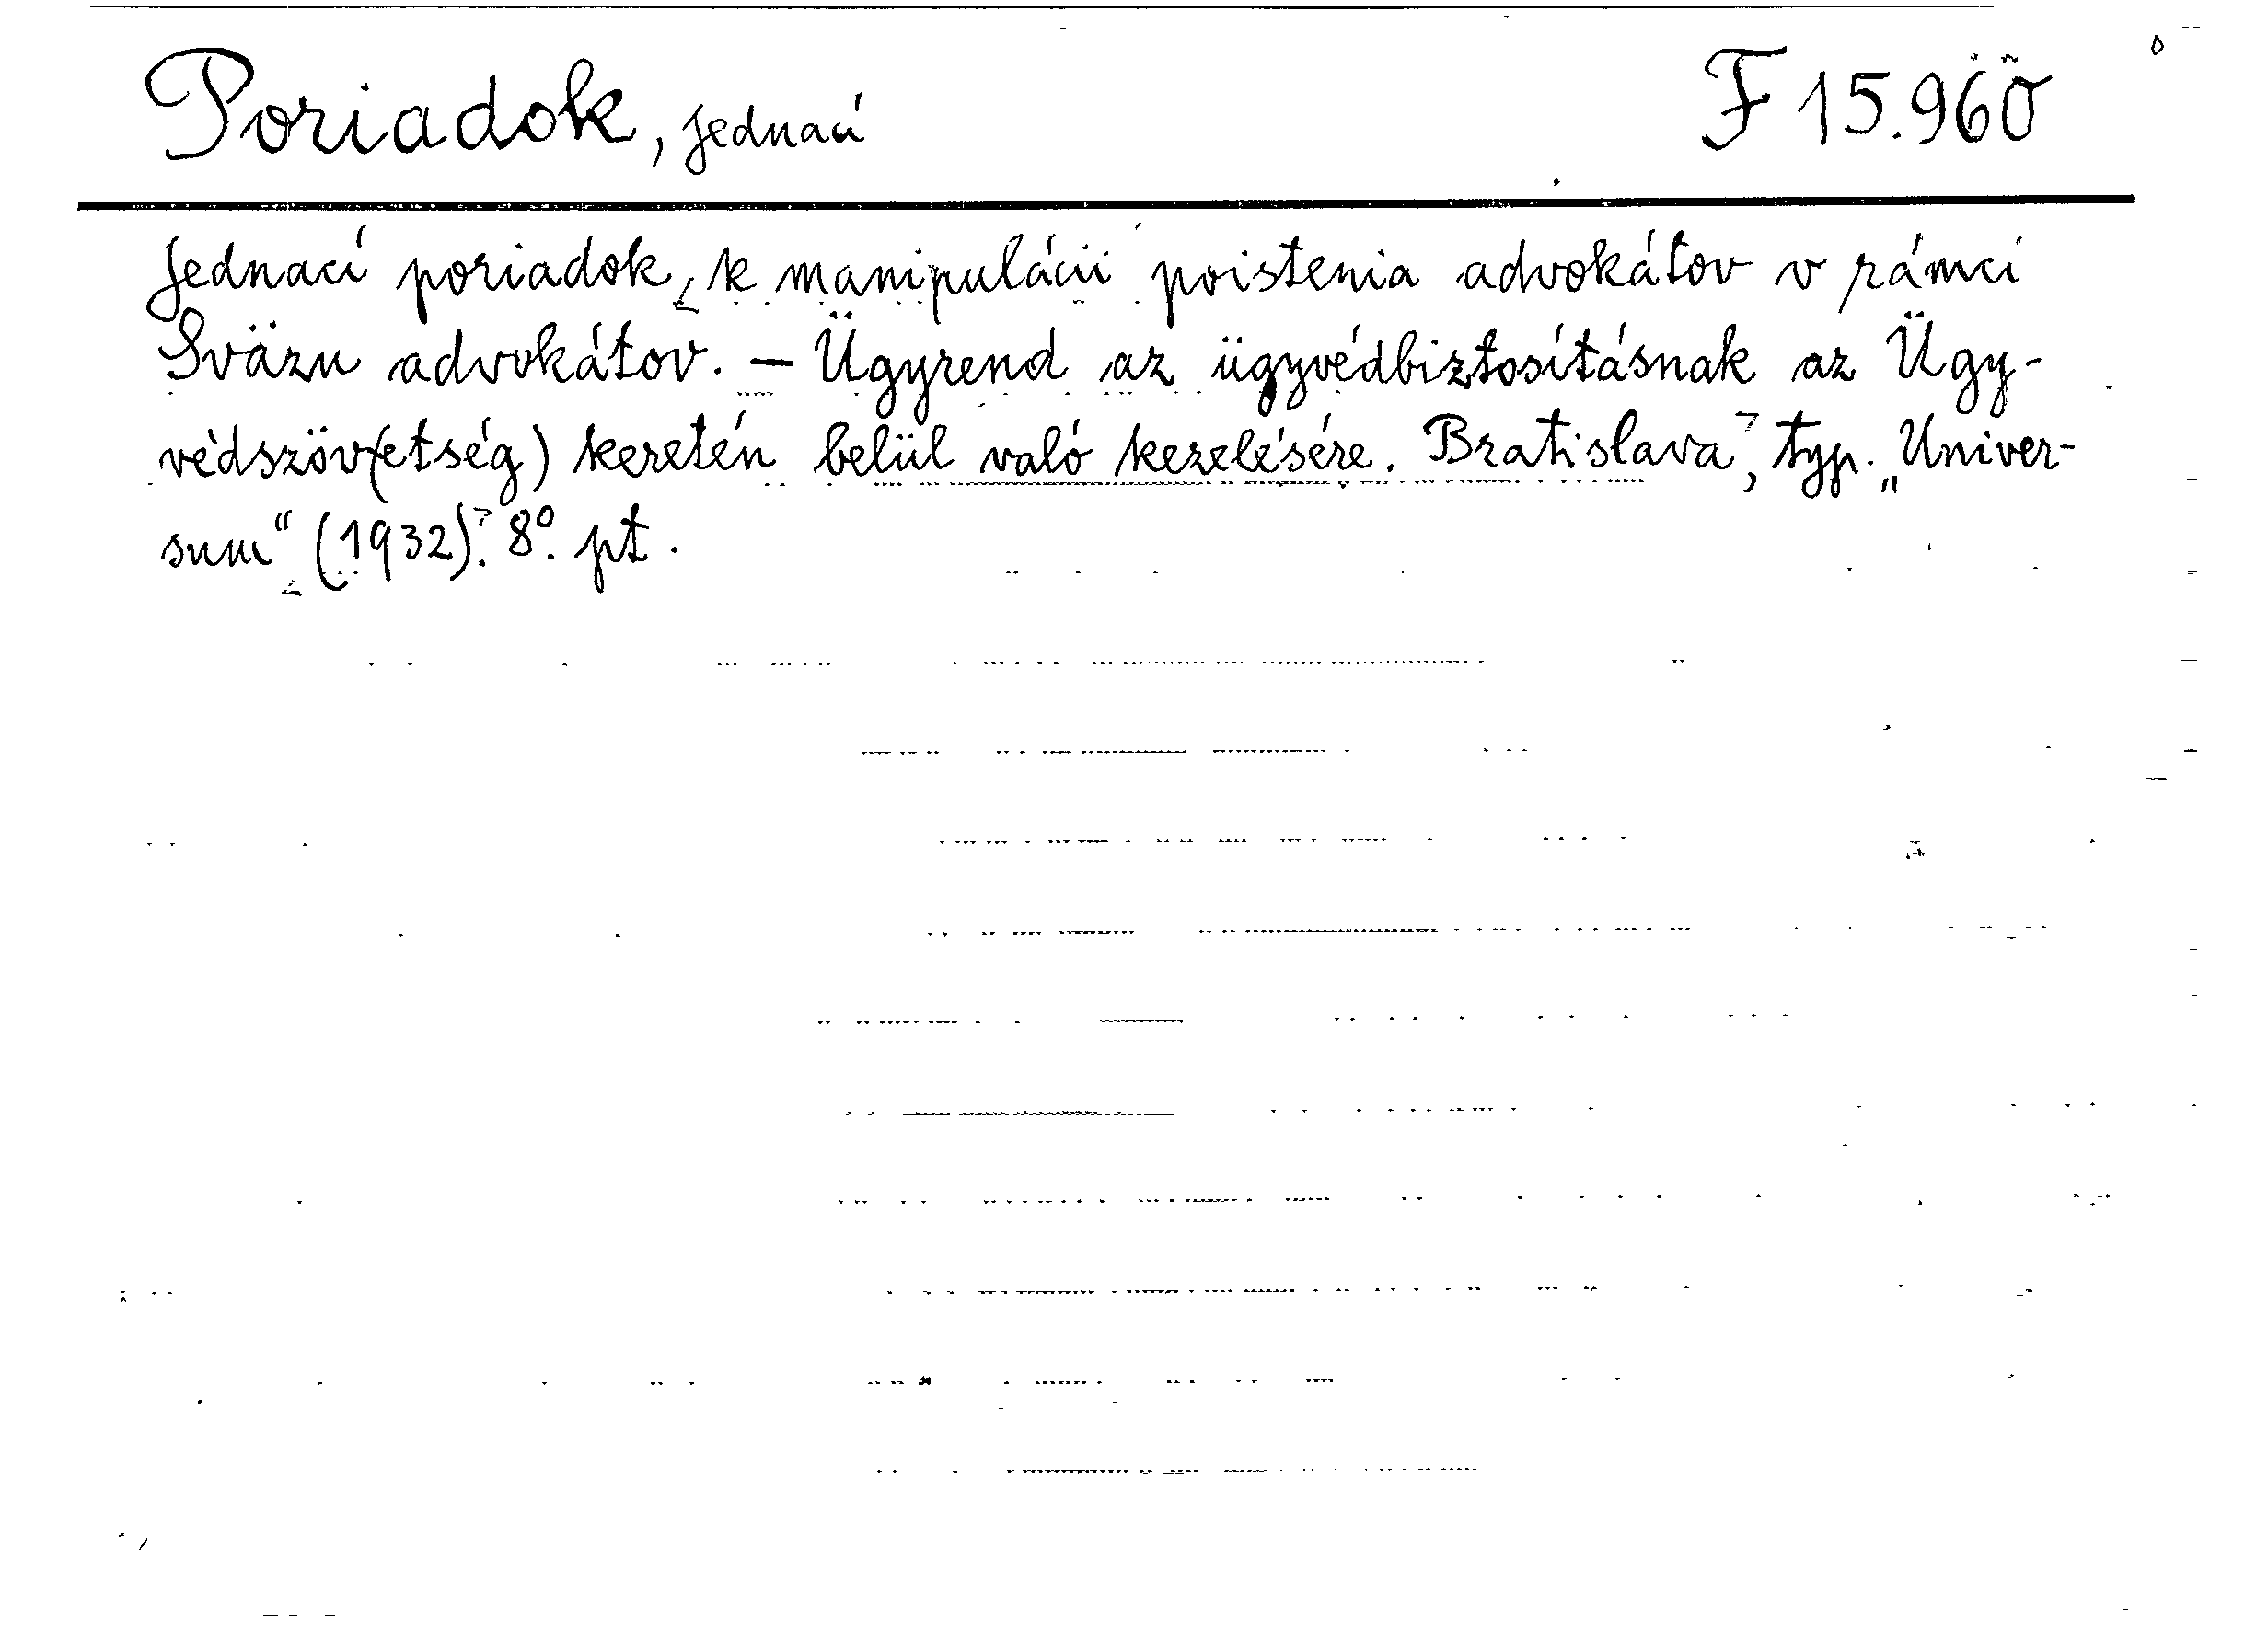 Poriadok, jednací F 15.960
Jednací poriadok, k manipulácii poistenia advokátov v rámci
Sväzu advokátov. — Ügyrend az ügyvédbiztosításnak az Ügy-
védszöv(etség) keretén belül való kezelésére. Bratislava, typ. „Univer-
sum“ (1932). 8° pt.